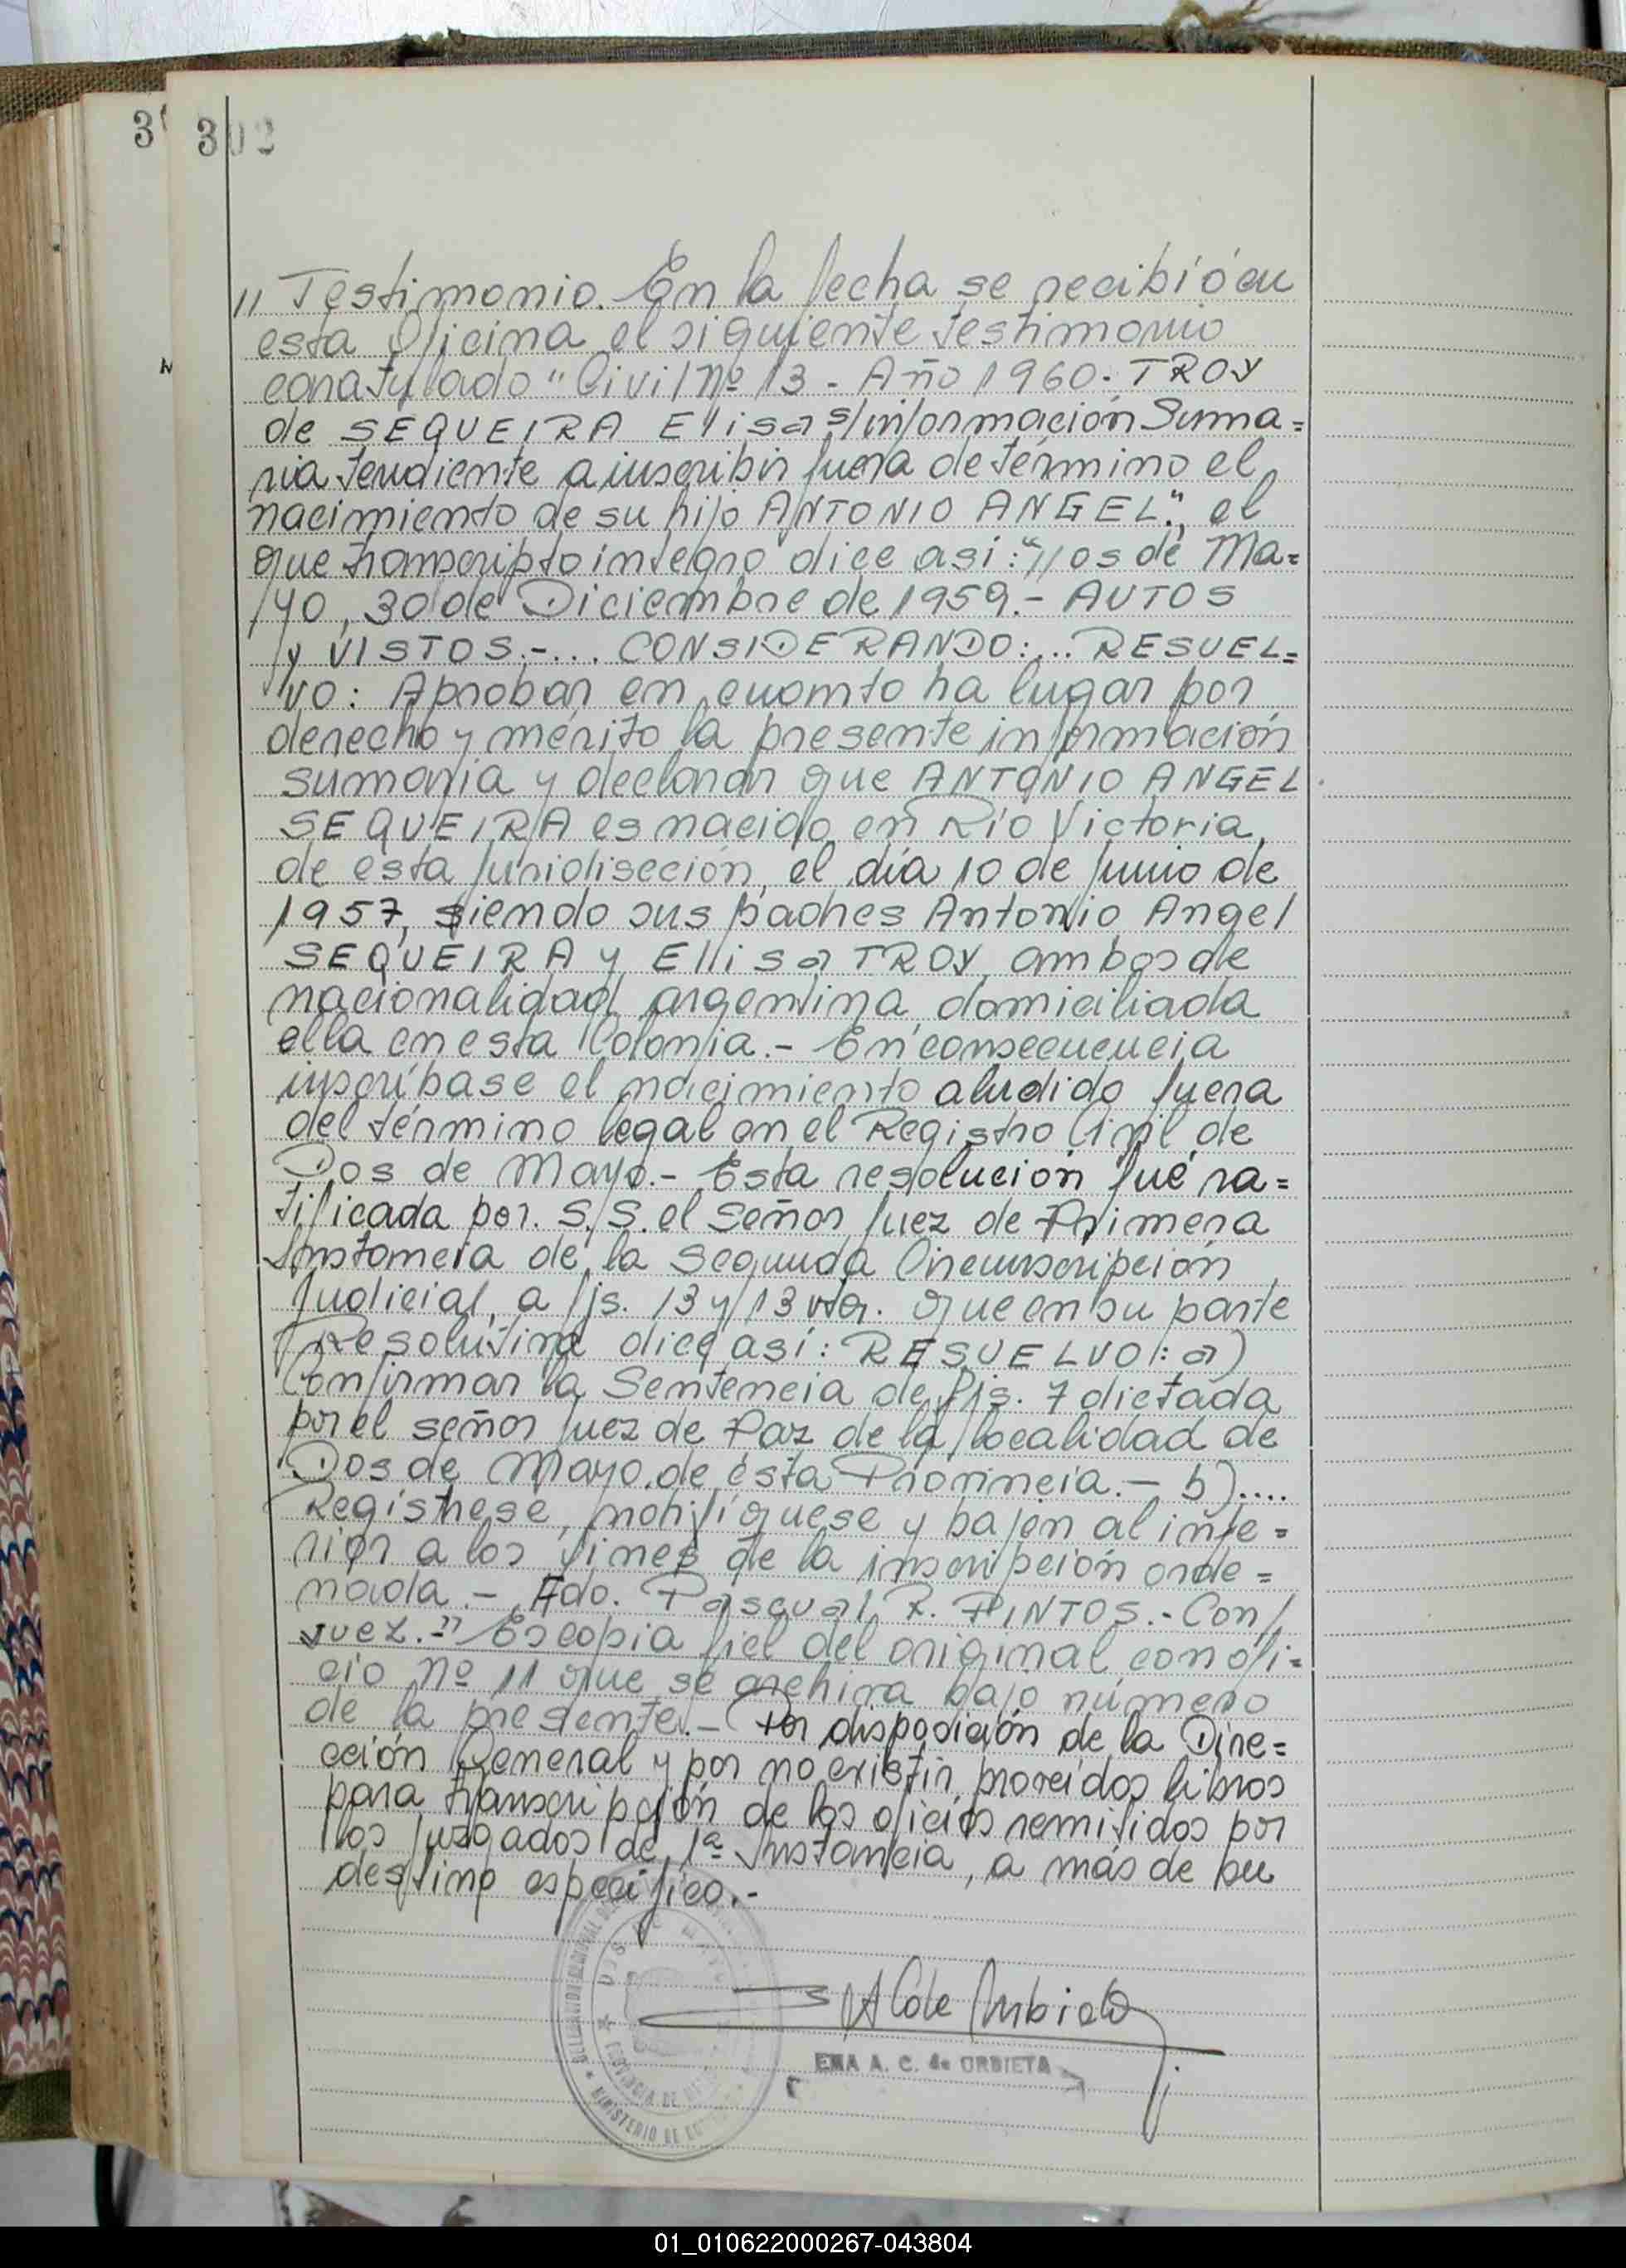 302
// Testimonio. En la fecha se recibió en
esta Oficina el siguiente testimonio
caratulado "Civil Nº 13 - Año 1960. TROY
de SEQUEIRA Elisa s/información Suma=
ria tendiente a inscribir fuera de término el
nacimiento de su hijo ANTONIO ANGEL", el
que transcripto integro dice así: "//os de Ma=
yo, 30 de Diciembre de 1959.- AUTOS
y VISTOS.-... CONSIDERANDO:... RESUEL=
VO: Aprobar en cuanto ha lugar por
derecho y mérito la presente información
sumaria y declarar que ANTONIO ANGEL
SEQUEIRA es nacido en Río Victoria,
de esta Juridisección, el día 10 de Junio de
1957, siendo sus padres Antonio Angel
SEQUEIRA y Elisa TROY, ambos de
nacionalidad argentina, domiciliada
ella en esta Colonia.- En consecuencia
inscríbase el nacimiento aludido fuera
del término legal en el Registro Civil de
Dos de Mayo.- Esta resolución fué ra=
tificada por S.S. el Señor Juez de Primera
Instancia de la Segunda Circunscripción
Judicial, a fjs. 13 y 13 vta. que en su parte
Resolutiva dice así: RESUELVO: a)
Confirmar la Sentencia de fjs. 7 dictada
por el señor Juez de Paz de la localidad de
Dos de Mayo de ésta Provincia.- b)....
Regístrese, notifíquese y bajen al infe=
rior a los fines de la inscripción orde=
nada.- Fdo. Pascual R. PINTOS.- Con/
juez.-" Es copia fiel del original con ofi=
cio Nº 11 que se archiva bajo número
de la presente.- Por disposición de la Dire=
cción General y por no existir proveídos libros
para transcripción de los oficios remitidos por
los Juzgados de 1ª Instancia, a más de su
destino específico.-
DOS DE MAYO
PROVINCIA DE
MINISTERIO DE
A C de Urbieta
EMA A. C. de URBIETA
01_010622000267-043804